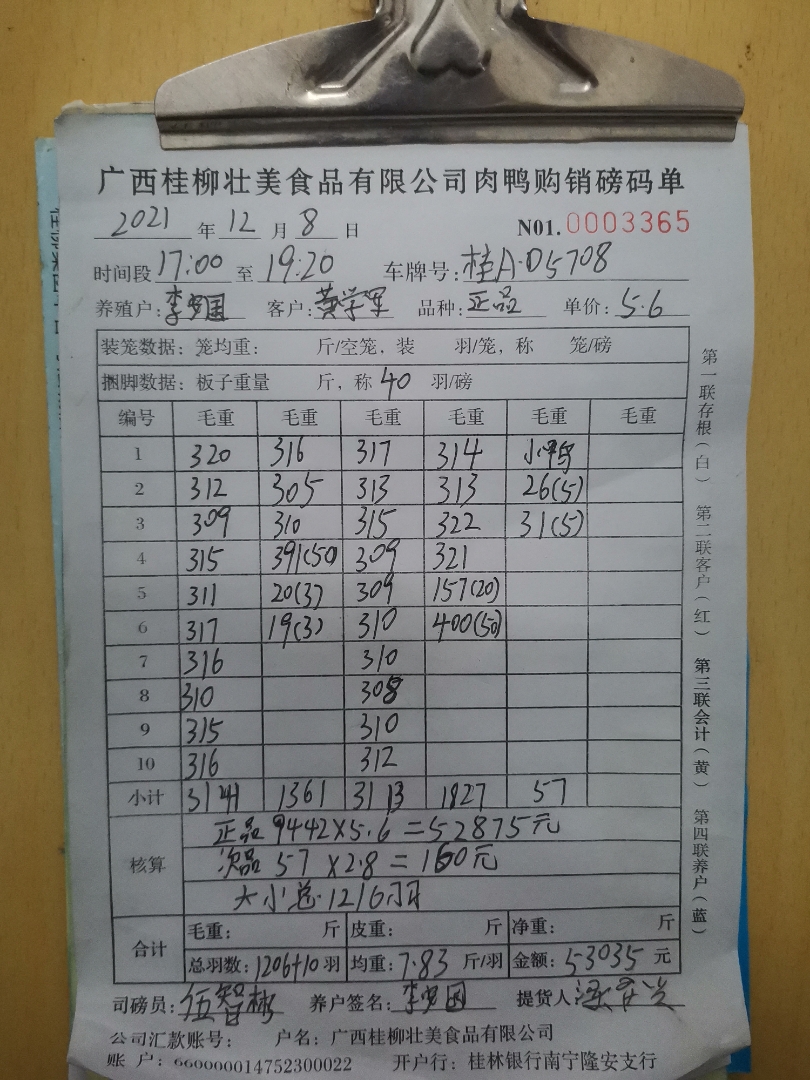 广西桂柳壮美食品有限公司肉鸭购销磅码单
2021 年 12 月 8 日 N01. 0003365
时间段 17:00 至 19:20 车牌号: 桂A·D5708
养殖户: 李 国 客户: 黄学军 品种: 正品 单价: 5.6
装笼数据: 笼均重: 斤/空笼, 装 羽/笼, 称 笼/磅
捆脚数据: 板子重量 斤, 称 40 羽/磅
编号 毛重 毛重 毛重 毛重 毛重 毛重
1 320 316 317 314 小鸭
2 312 305 313 313 26(5)
3 309 310 315 322 31(5)
4 315 391(50) 309 321
5 311 20(3) 309 157(20)
6 317 19(3) 310 400(50)
7 316 310
8 310 308
9 315 310
10 316 312
小计 3141 1361 3113 1827 57
核算
正品 9442×5.6=52875元
次品 57×2.8=160元
大小总·1216羽
合计
毛重: 斤 皮重: 斤 净重: 斤
总羽数: 1206+10 羽 均重: 7.83 斤/羽 金额: 53035 元
司磅员: 伍智彬 养户签名: 李 国 提货人
公司汇款账号: 户名: 广西桂柳壮美食品有限公司
账 户: 660000014752300022 开户行: 桂林银行南宁隆安支行
第一联存根(白) 第二联客户(红) 第三联会计(黄) 第四联养户(蓝)